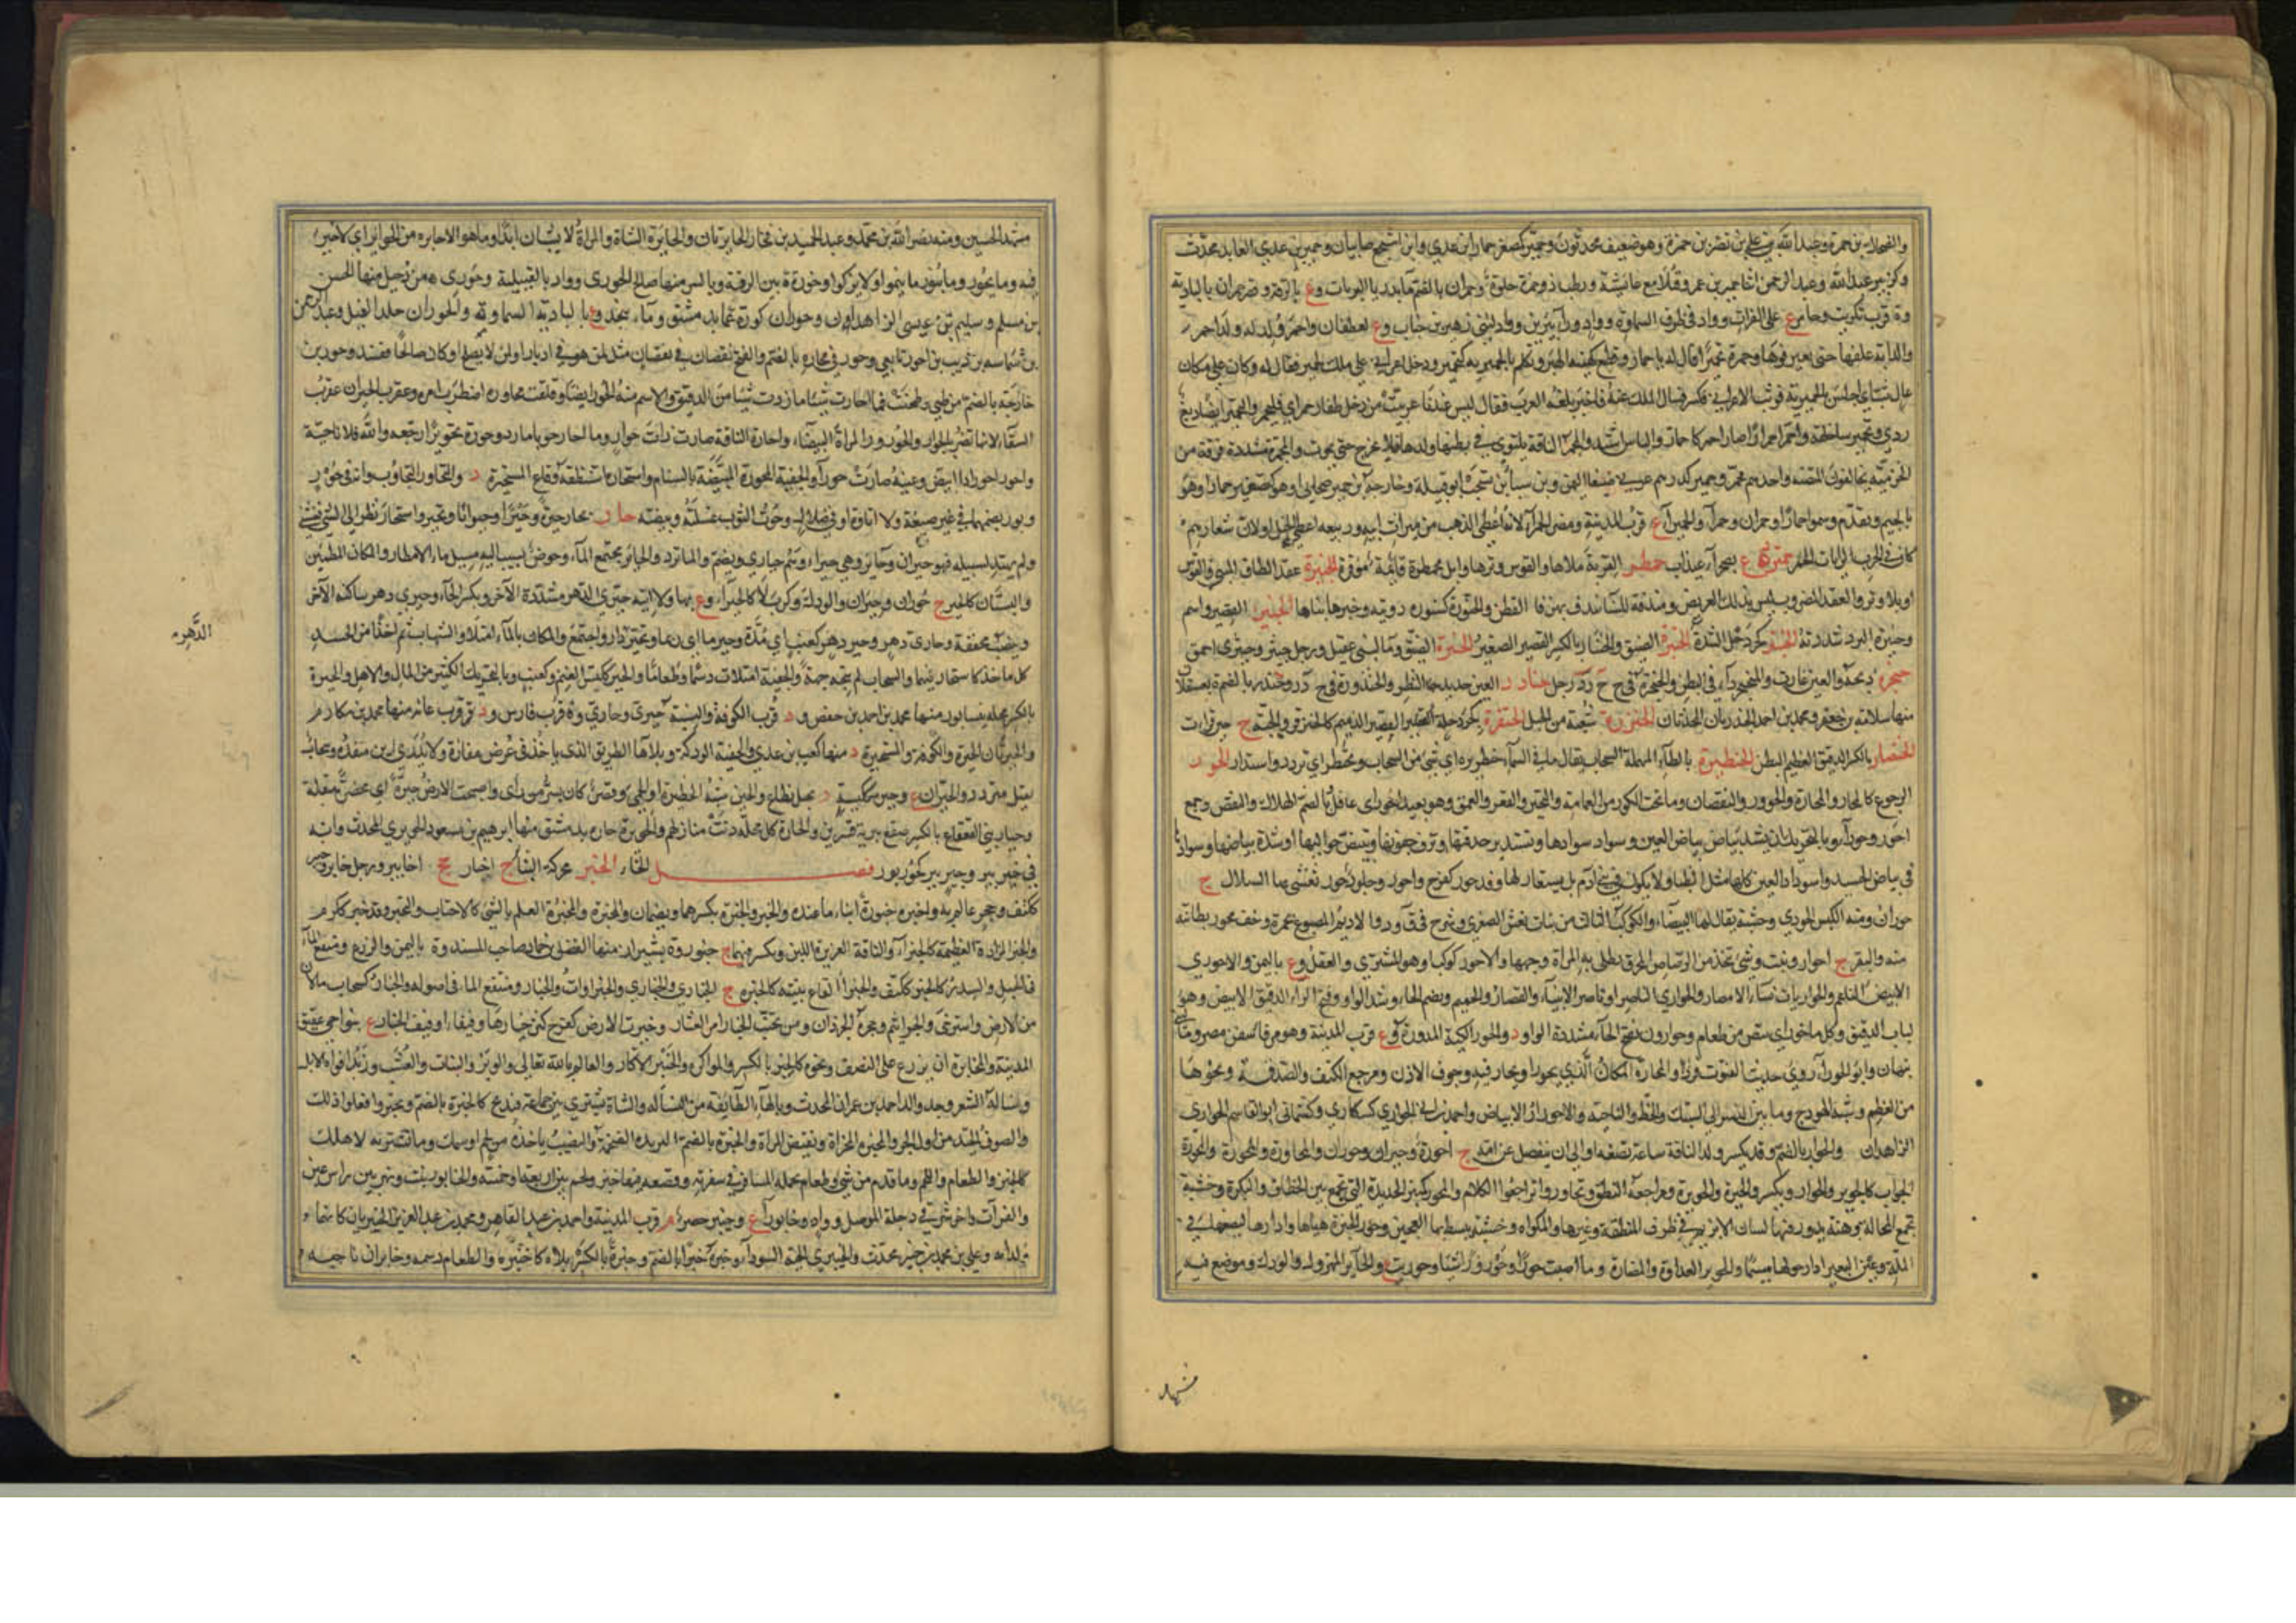 والضحاك بن حمرة وعبد الله بن علي بن نصر بن حمرة وهو ضعيف محدثون وحمير كصغر حمار ابن عدي وابن اشجع صحابيان وحمير بن عدي العابد محدث
وكزبير عبد الله وعبد الرحمن ابنا حمير بن عمرو قتلا مع عائشة ورطب ذو حمرة حلوة وحمران بالضم ماء بديار الرباب وع بالرقة وقصر حمران بالبادية
وة قرب تكريت وحامر ع على الفرات وواد في طرف السماوة وواد وراء يبرين وواد لبني زهير بن جناب وع لغطفان واحمر ولد له ولد احمر
والدابة علفها حتى تغير فوها وحمره تحميرا قال له يا حمار وقطع كهيئة الهبر وتكلم بالحميرية كتحمير ودخل اعرابي على ملك لحمير فقال له وكان على مكان
عال ثب اي اجلس بالحميرية فوثب الاعرابي فتكسر فسال الملك عنه فاخبر بلغة العرب فقال ليس عندنا عربيت من دخل ظفار حمر اي فليحمر والتحمير ايضا دبغ
ردي وتحمير ساء خلقه واحمر احمرارا صار احمر كاحمار والباس اشتد والمحمر الناقة يلتوي في بطنها ولدها فلا يخرج حتى يموت والمحمرة مشددة فرقة من
الخرمية يخالفون المبيضة واحدهم محمر وحمير كدرهم غربي صنعاء اليمن وبن سبا بن يشجب ابو قبيلة وخارجة بن حمير صحابي او هو كتصغير حمار او هو
بالجيم وتقدم وسموا حمارا وحمران وحمراء والحميراء ع قرب المدينة ومضر الحمراء لانه اعطي الذهب من ميراث ابيه وربيعة اعطي الخيل او لان شعارهم
كان في الحرب الرايات الحمر حمترى ع بصحراء عيذاب حمطر القربة ملاها والقوس وترها وابل محمطرة قائمة موقرة الحنيرة عقد الطاق المبني والقوس
او بلا وتر والعقد المضروب ليس بذلك العريض ومندفة للنساء يندف بها القطن والحنورة كسنورة دويبة وحنرها بناها الحنبر القصير واسم
وحنبرة البرد شدته الحنبتر كجردحل الشدة الحنترة الضيق والحنتار بالكسر القصير الصغير الحنثرة الضيق وماء لبني عقيل ورجل حنثر وحنثري احمق
حنجره ذبحه والعين غارت والمحنجر داء في البطن والحنجرة في ح ج ر رجل حنادر العين حديد النظر والحندورة في ح د ر وحندر بالضم ة بعسقلان
منها سلامة بن جعفر ومحمد بن احمد الحندريان المحدثان الحنزرة شعبة من الجبل الحنزقرة بكجردحلة القصير الدميم كالحنزقر والحية ج حنزقرات
الحنصار بالكسر الدقيق العظيم البطن الحنطيرة بالطاء المهملة السحاب يقال ما في السماء حنطيرة اي شيء من السحاب وتحنطر اي تردد واستدار الحور
الرجوع كالمحار والمحارة والحوور والنقصان وما تحت الكور من العمامة والتحير والقعر والعمق وهو بعيد الحور اي عاقل وبالضم الهلاك والنقص وجمع
احور وحوراء وبالتحريك ان يشتد بياض بياض العين وسواد سوادها وتستدير حدقتها وترق جفونها ويبيض حواليها او شدة بياضها وسوادها
في بياض الجسد واسوداد العين كلها مثل الظباء ولا يكون في بني ادم بل يستعار لها وقد حور كفرح واحور وجلود حمر تغشى بها السلال ج
حوران ومنه الكبش الحوري وخشبة يقال لها البيضاء والكوكب الثالث من بنات نعش الصغرى وشرح في ق ود والاديم المصبوغ بحمرة وخف محور بطانته
منه والبقر ج احوار ونبت وشيء يتخذ من الرصاص المحرق تطلي به المراة وجهها والاحور كوكب او هو المشتري والعقل وع باليمن والاحوري
الابيض الناعم والحواريات نساء الامصار والحواري الناصر او ناصر الانبياء والقصار والحميم وبضم الحاء وشد الواو وفتح الراء الدقيق الابيض وهو
لباب الدقيق وكل ما حور اي بيض من طعام وحوارون بفتح الحاء مشددة الواو د والحوراء الكية المدورة وع قرب المدينة وهو مرفا سفن مصر وماء
نبهان وابو الحوراء روى حديث القنوت والمحارة المكان الذي يحور او يحار فيه وجوف الاذن ومرجع الكتف والصدفة ونحوها
من العظم وشبه الهودج وما بين النسر الى السنبك والخط والناحية والاحورار الابيضاض واحمد بن ابي الحواري كسكارى وكسماني ابو القاسم الحوارى
الزاهدان والحوار بالضم وقد يكسر ولد الناقة ساعة تضعه او الى ان يفصل عن امه ج احورة وحيران وحوران والمحاورة والمحورة والمحورة
الجواب كالحوير والحوار ويكسر والحيرة والحويرة ومراجعة النطق وتحاوروا تراجعوا الكلام والمحور كمنبر الحديدة التي تجمع بين الخطاف والبكرة وخشبة
تجمع المحالة وهنة يدور فيها لسان الابزيم في طرف المنطقة وغيرها والمكواة وخشبة يبسط بها العجين وحور الخبزة هياها وادارها ليضعها في
الملة وعين البعير ادار حولها ميسما والحوير العداوة والمضارة وما اصبت حورا وحورورا شيئا وحوريت ع والحائر المهزول والودك وموضع فيه
مشهد
مشهد الحسين ومنه نصر الله بن محمد وعبد الحميد بن فخار الحائريان والحائرة الشاة والمراة لا يشبان ابدا وما هو الا حائرة من الحوائر اي لا خير
فيه وما يحور وما يبور ما ينمو ولا يزكو وحورة ة بين الرقة وبالس منها صالح الحوري وواد بالقبلية وحوري ة من دجيل منها الحسن
بن مسلم وسليم بن عيسى الزاهدان وحوران كورة بدمشق وماء بنجد وع بالبادية السماوة والحوران جلد الفيل وعبد الرحمن
بن شماسة بن ذئب بن احور تابعي وحور في محارة بالضم والفتح نقصان في نقصان مثل لمن هو في ادبار او لمن لا يصلح او كان صالحا ففسد وحور بن
خارجة بالضم من طي وطحنت فما احارت شيئا ما ردت شيئا من الدقيق والاسم منه الحور ايضا وقلقت محاوره اضطرب امره وعقرب الحيران عقرب
الشتاء لانها تضر بالحوار والحورورة المراة البيضاء واحارت الناقة صارت ذات حوار وما احار جوابا ما رد وحوره تحويرا رجعه والله فلانا خيبه
واحور احورارا ابيض وعينه صارت حوراء والجفنة المحورة المبيضة بالسنام واستحاره استنطقه وقاع المستحيرة د والتحاور التجاوب وانه في حور
وبور بضمهما في غير صنعة ولا اتاوة او في ضلال وحرت الثوب غسلته وبيضته حار يحار حيرة وحيرا وحيرانا وتحير واستحار نظر الى الشيء فغشي
ولم يهتد لسبيله فهو حيران وحائر وهي حيراء وهم حيارى ويضم والماء تردد والحائر مجتمع الماء وحوض يسيب اليه مسيل ماء الامطار والمكان المطمئن
والبستان كالحير ج حوران وحيران والودك وكربلاء كالحيراء وع بها ولا اتيه حيري الدهر مشددة الاخر وبكسر الحاء وحيري دهر ساكنة الاخر
وينصب مخففة وحاري دهر وحير دهر كعنب اي مدة الدهر وحير ما اي ربما وتحير الماء دار واجتمع والمكان بالماء امتلا والشباب تم اخذا من الجسد
الدهر
كل ماخذ كاستحار فيهما والسحاب لم يتجه جهة والجفنة امتلات دسما وطعاما والحير ككيس الغيم وكعنب وبالتحريك الكثير من المال والاهل والحيرة
بالكسر محلة بنيسابور منها محمد بن احمد بن حفص ود قرب الكوفة والنسبة حيري وحاري وة قرب فارس ود قرب عانة منها محمد بن مكارم
والحيرتان الحيرة والكوفة والمستحيرة د منها كعب بن عدي والجفنة الودكة وبلا هاء الطريق الذي ياخذ في عرض مفازة ولا يدرى اين منفذه وسحاب
ثقيل متردد والحياران ع وحيرة ككيسة د بجبل نطاع والحير شبه الحظيرة او الحمى وقصر كان بسر من راى واصبحت الارض حيرة اي مخضرة مبقلة
وحيار بني القعقاع بالكسر صقع ببرية قنسرين والحارة كل محلة دنت منازلهم والحويرة حارة بدمشق منها ابراهيم بن مسعود الحويري المحدث وانه
في حير بير وحير بير كحور بور فصل الخاء الخبر محركة النبا ج اخبار جج اخابير ورجل خابر وخبير
ككتف وجحر عالم به واخبره خبوره انباه ما عنده والخبر والخبرة بكسرهما ويضمان والمخبرة والمخبرة العلم بالشيء كالاختبار والتخبر وقد خبر ككرم
والخبر المزادة العظيمة كالخبراء والناقة الغزيرة اللبن ويكسر فيهما ج خبور وة بشيراز منها الفضل بن حماد صاحب المسند وة باليمن والزرع ومنقع الماء
في الجبل والسدر كالخبر ككتف والخبراء القاع ينبته كالخبرة ج الخباري والخبارى والخبراوات والخبار ومنقع الماء في اصوله والخبار كسحاب ما لان
من الارض واسترخى والجراثيم وجحرة الجرذان ومن تجنب الخبار امن العثار وخبرت الارض كفرح كثر خبارها وفيفاء او فيف الخبار ع بنواحي عقيق
المدينة والمخابرة ان يزرع على النصف ونحوه كالخبر بالكسر والمؤاكرة والخبير الاكار والعالم بالله تعالى والوبر والنبات والعشب وزبد افواه الابل
ونسالة الشعر وجد والد احمد بن عمران المحدث وبالهاء الطائفة منه والشاة تشترى بين جماعة فتذبح كالخبرة بالضم وتخبروا فعلوا ذلك
والصوف الجيد من اول الجز والمخبرة المخراة ونقيض المراة والخبرة بالضم الثريدة الضخمة والنصيب ياخذه من لحم او سمك وما تشتريه لاهلك
كالخبر والطعام واللحم وما قدم من شيء وطعام يحمله المسافر في سفرته وقصعة فيها خبز ولحم بين اربعة او خمسة والخابور نبت ونهر بين راس عين
والفرات واخر شرقي دجلة الموصل وواد وخابوراء ع وخيبر حصن م قرب المدينة واحمد بن عبد القاهر ومحمد بن عبد العزيز الخيبريان كانهما
ولدا به وعلي بن محمد بن خيبر محدث والخيبري الحية السوداء وخبره خبرا بالضم وخبرة بالكسر بلاه كاختبره والطعام دسمه وخابران ناحية